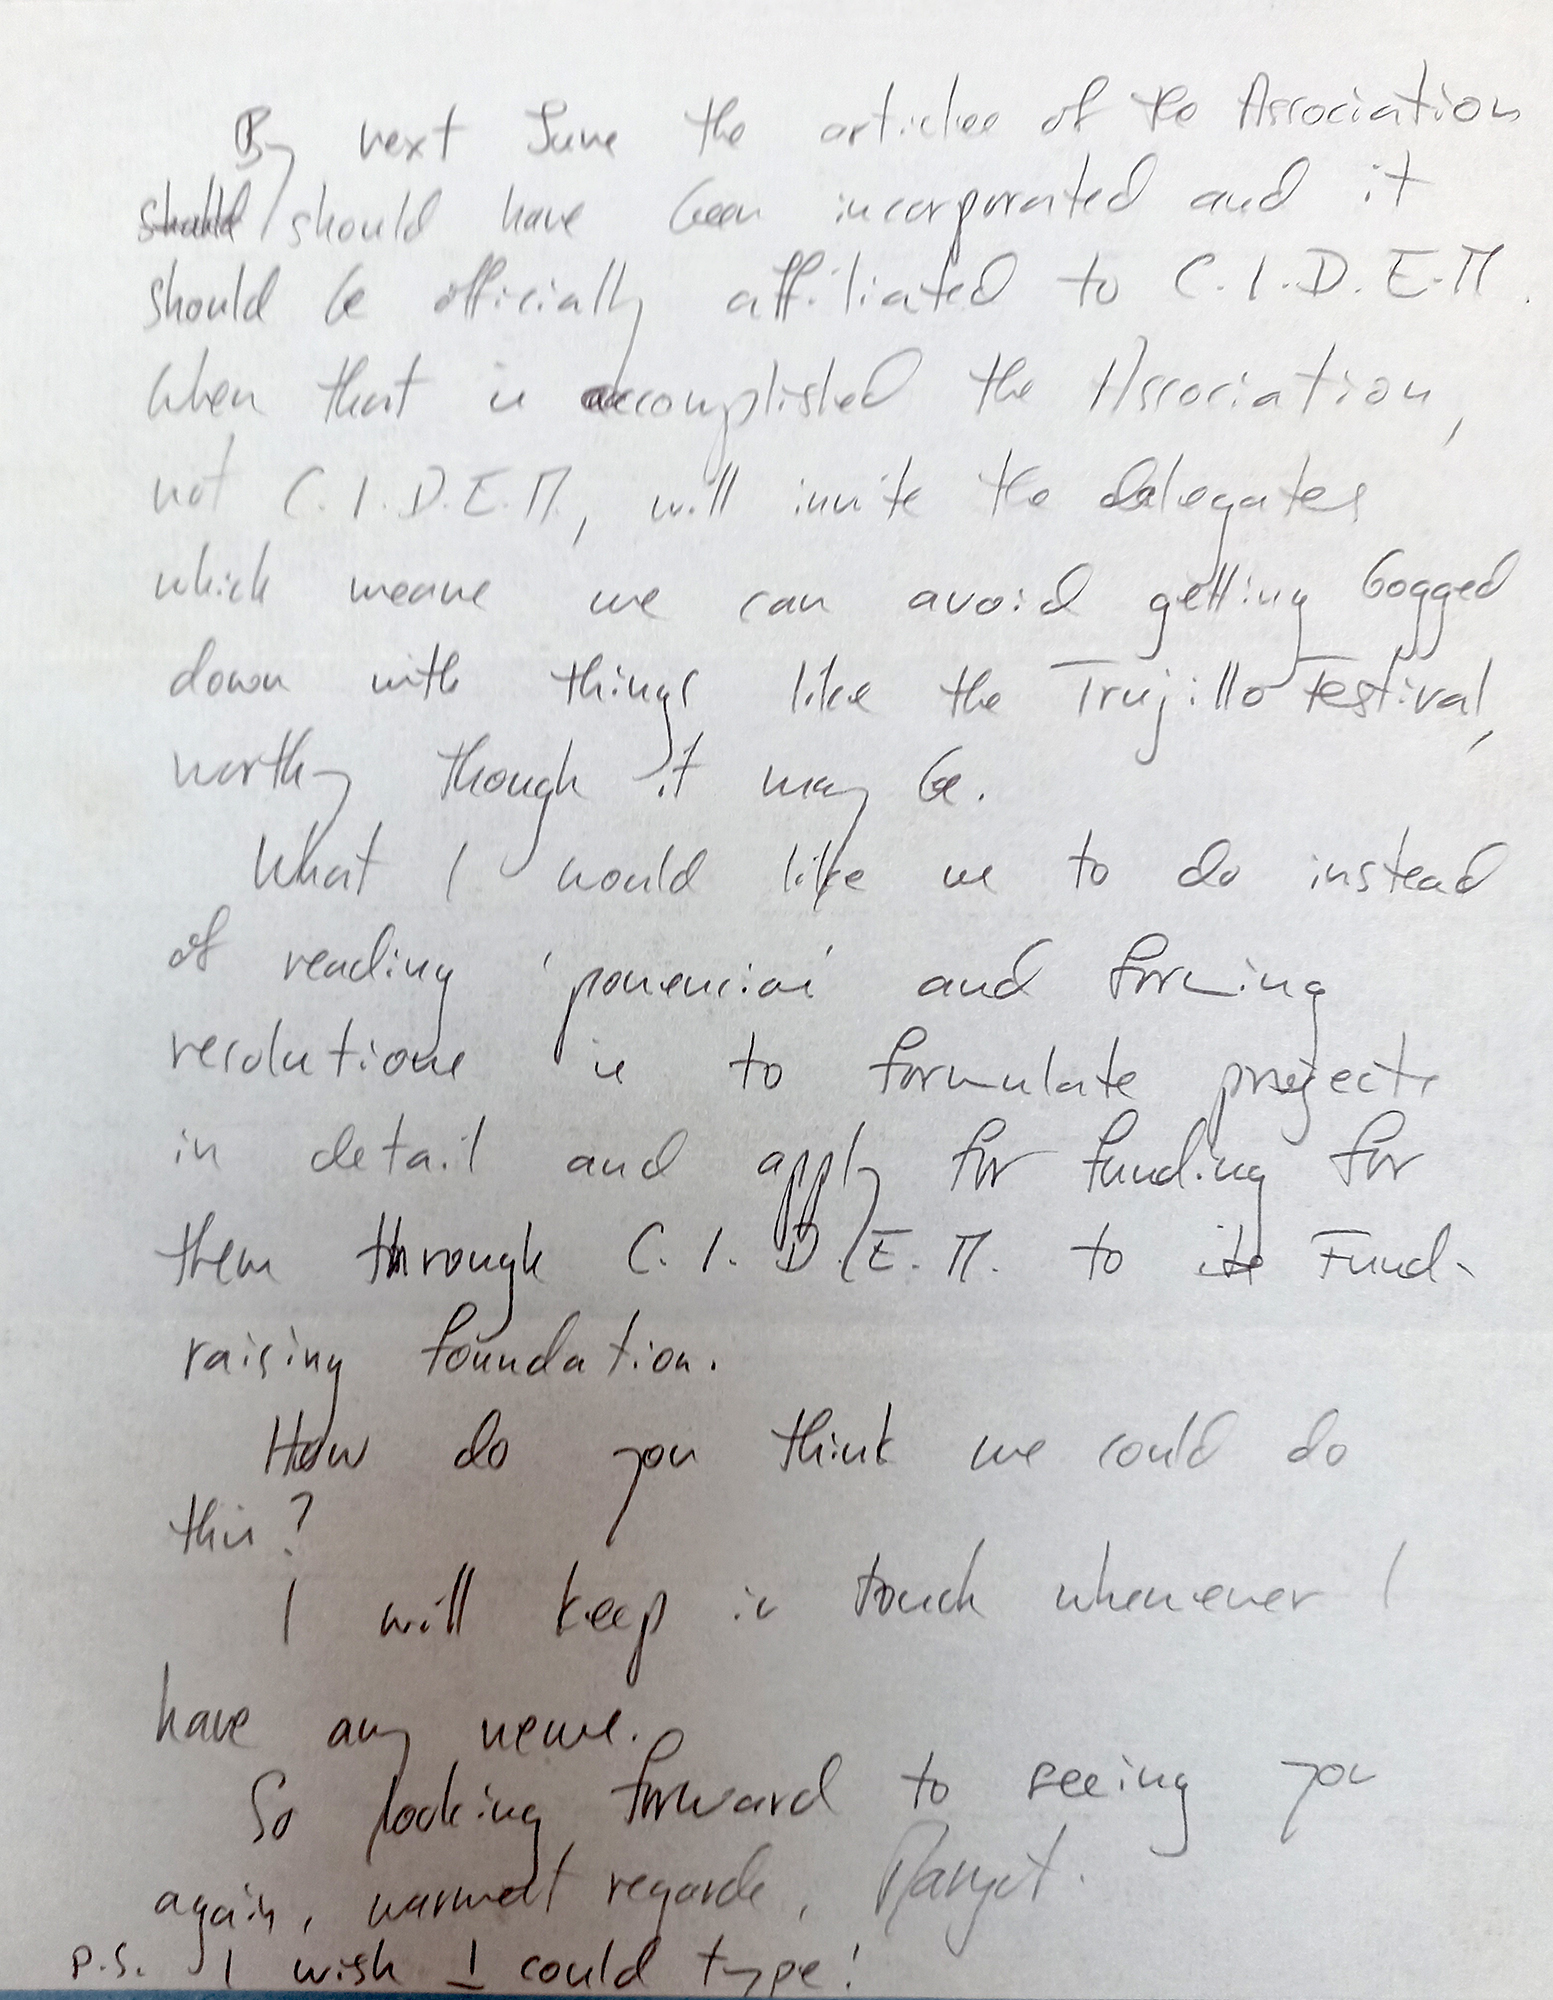 By next June the articles of the Association
should should have been incorporated and it
should be officially affiliated to C.I.D.E.M.
When that is accomplished the Association,
not C.I.D.E.M., will invite the delegates
which means we can avoid getting bogged
down with things like the Trujillo Festival,
worthy though it may be.
What I would like us to do instead
of reading 'ponencias' and forming
resolutions is to formulate projects
in detail and apply for funding for
them through C.I.D.E.M. to its Fund-
raising foundation.
How do you think we could do
this?
I will keep in touch whenever I
have any news.
So looking forward to seeing you
again, warmest regards, Margot.
P.S. I wish I could type!